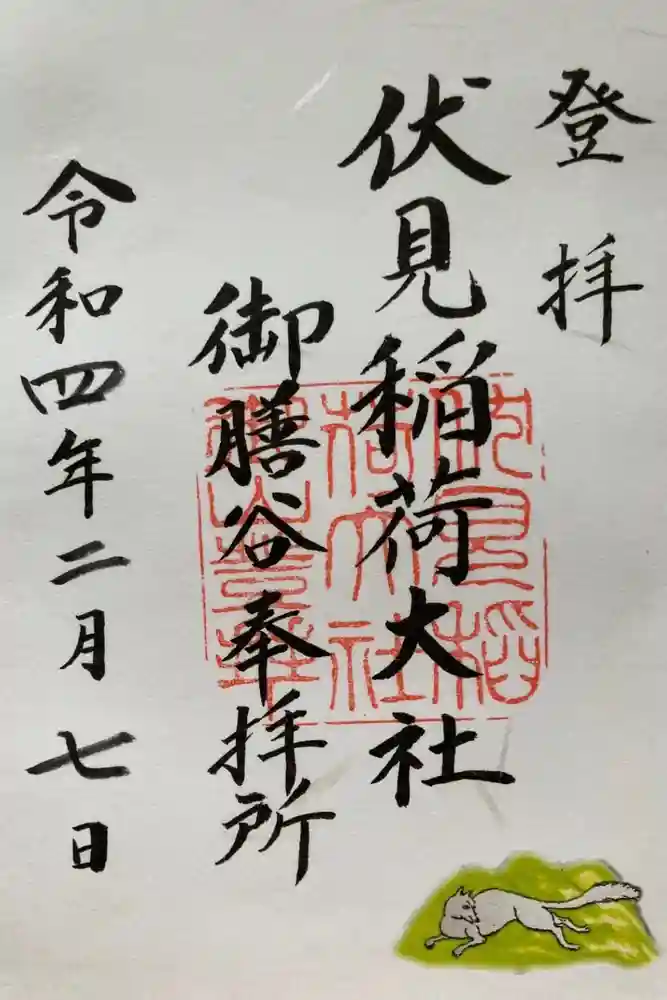 登拝
伏見稲荷大社
御膳谷奉拝所
令和四年二月七日